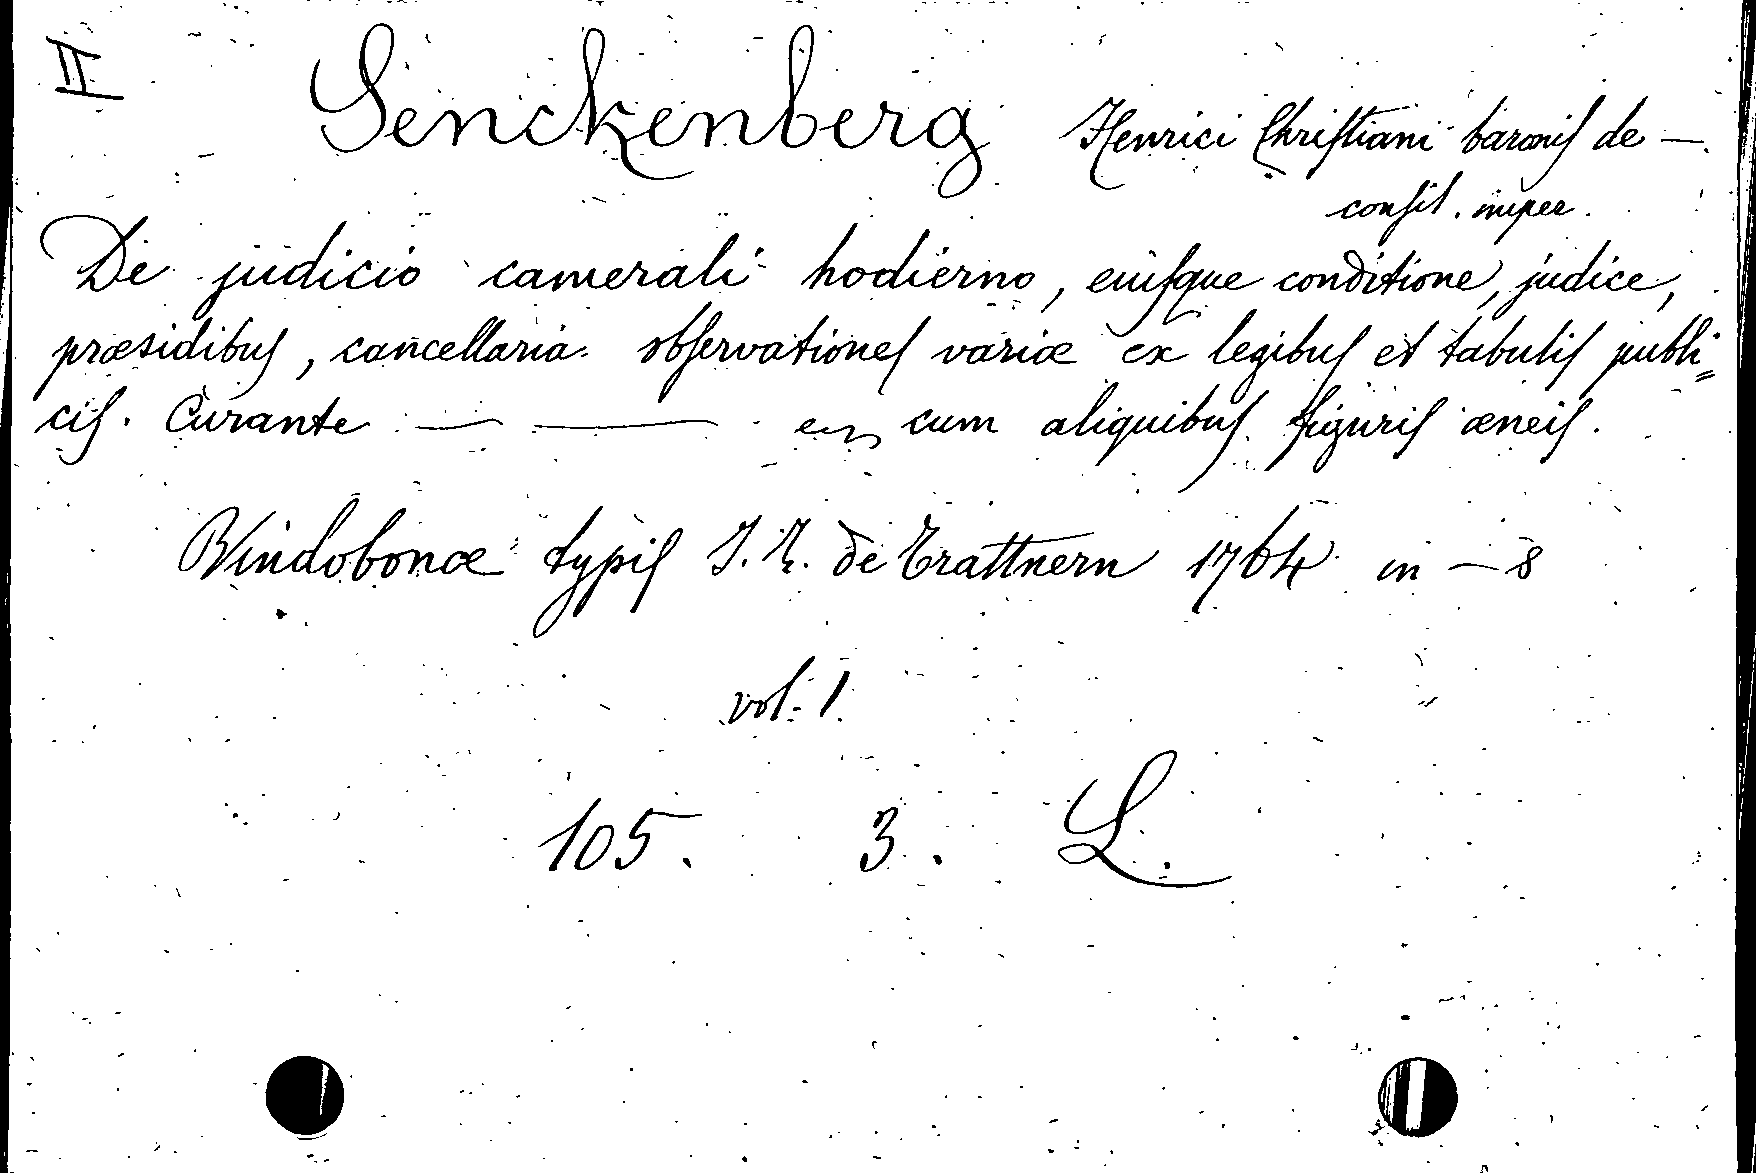 II Senckenberg Henrici Chriſtiani baroniſ de —.
conſil. imper.
De judicio camerali hodierno, eiuſque conditione, judice,
præsidibuſ, cancellaria obſervationeſ variæ ex legibuſ et tabuliſ publi⸗
ciſ. Curante — — cum aliquibuſ figuriſ æneiſ.
Vindobonæ typiſ J. T. de Trattnern 1764 in — 8
vol. 1.
105. 3. L.